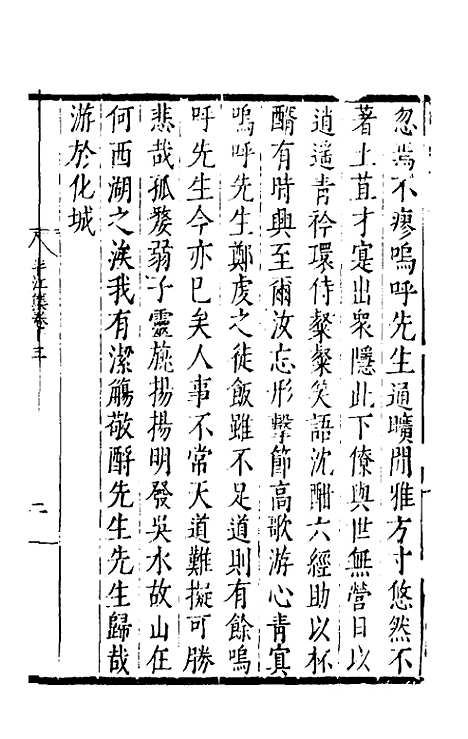 忽焉不瘳嗚呼先生通曠閒雅方寸悠然不
著土苴才寔出衆隱此下僚與世無營日以
逍遥青衿環侍粲粲笑語沈酣六經助以杯
醑有時興至爾汝忘形擊節高歌游心青冥
嗚呼先生鄭虔之徒飯雖不足道則有餘嗚
呼先生今亦已矣人事不常天道難擬可勝
悲哉孤嫠弱子靈旐揚揚明發吳水故山在
何西湖之涘我有潔觴敬酹先生先生歸哉
游於化城
半江集卷十三
二